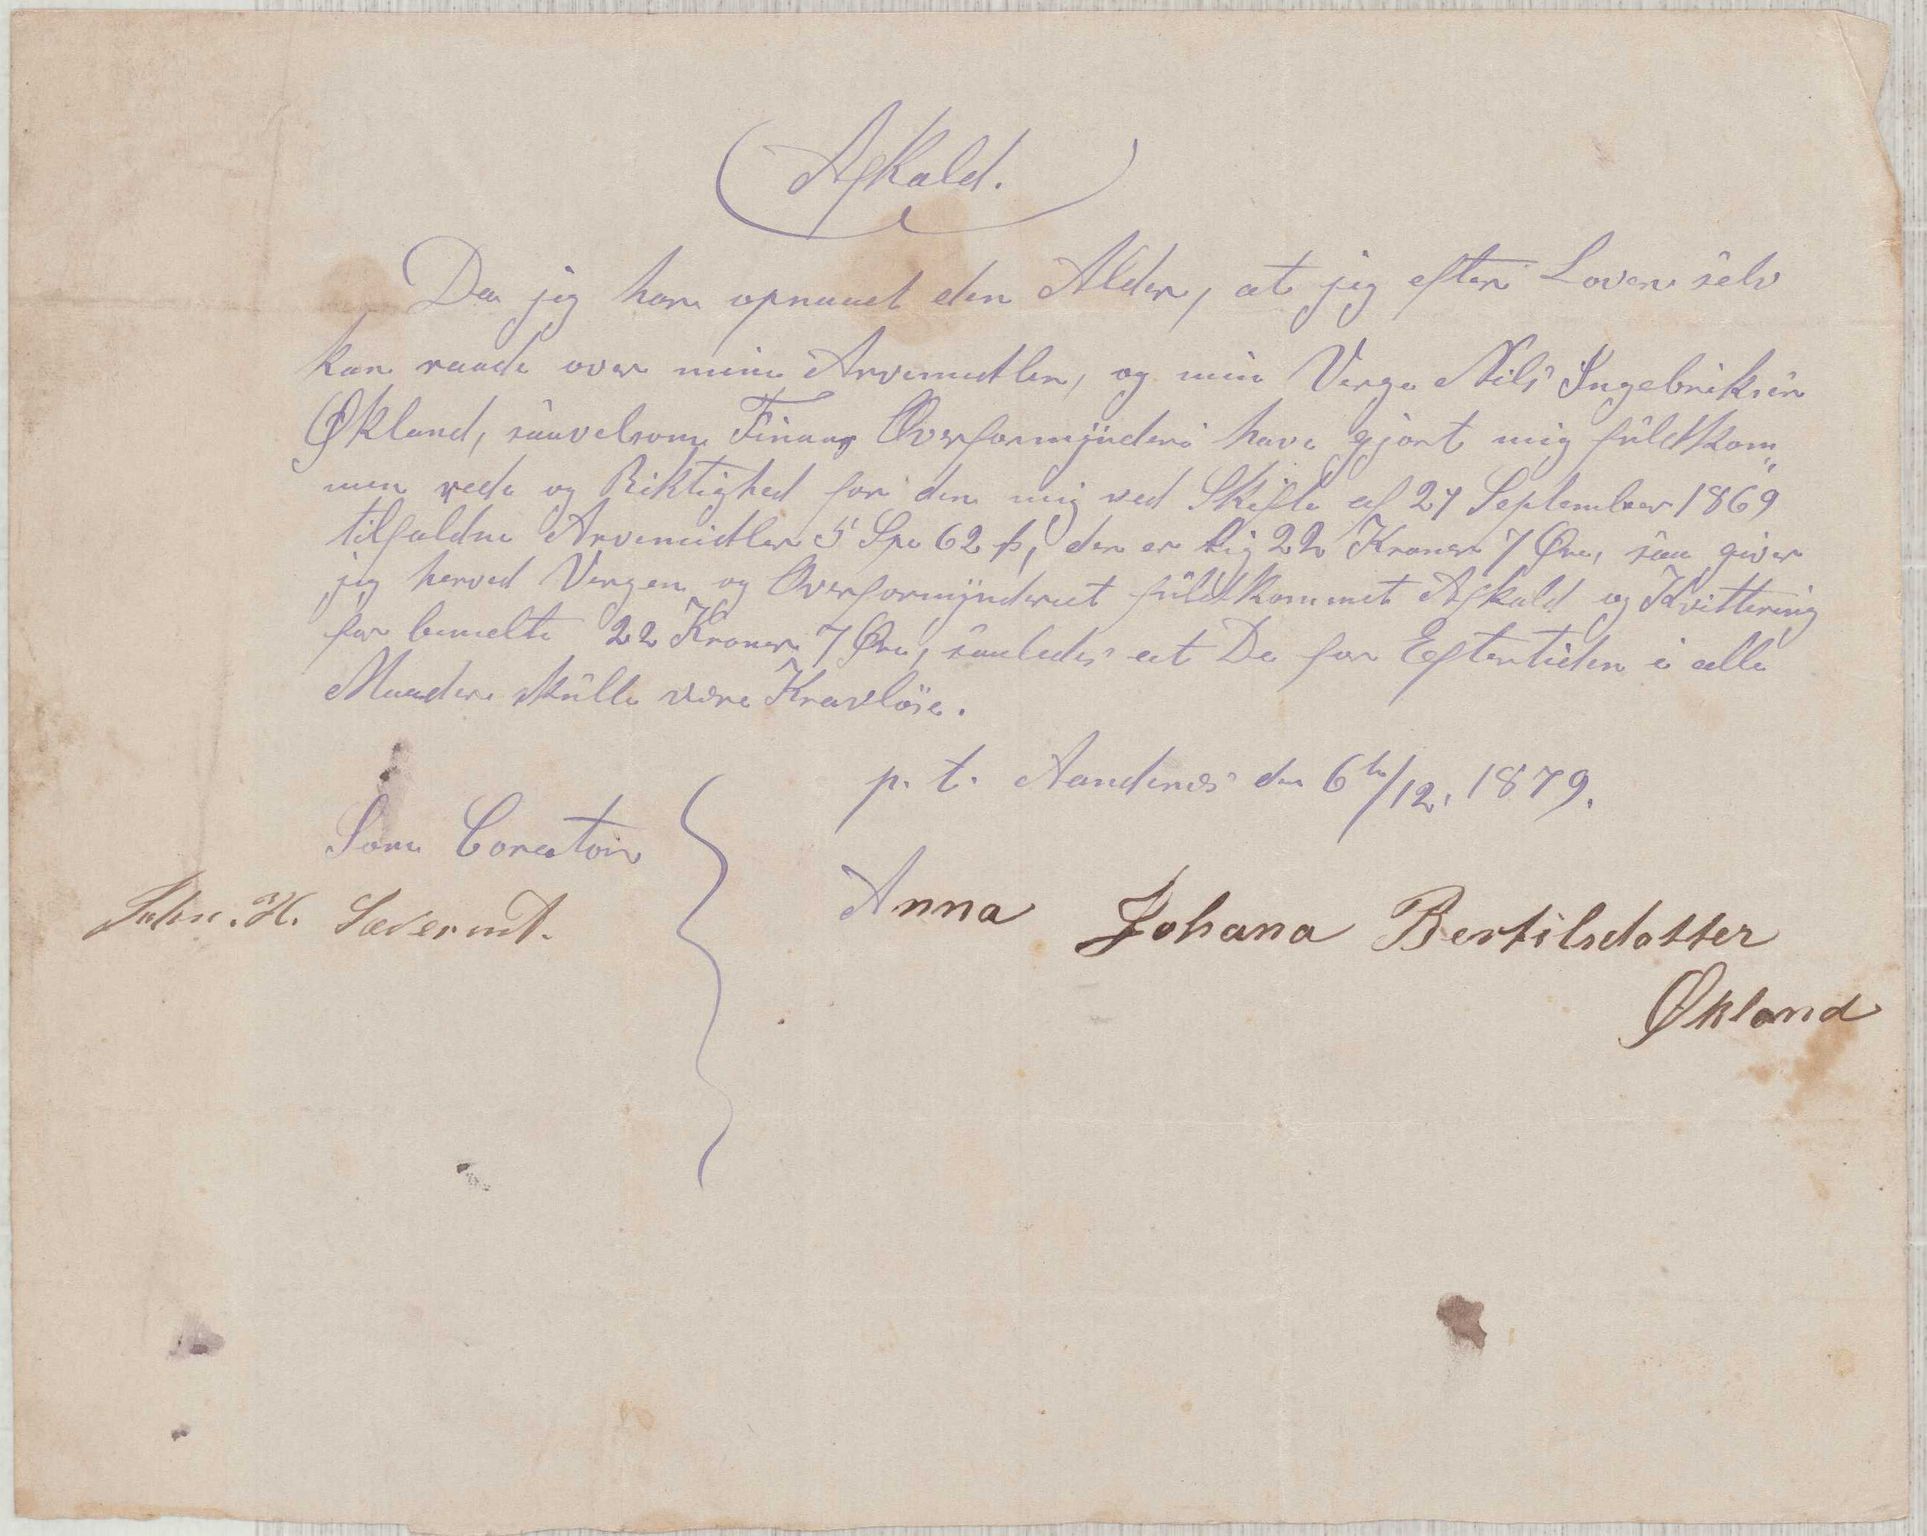 Afkald.
Da jeg har opnaaet den Alder, at jeg efter Loven selv
kan raade over mine Arvemidler, og min Verge Nils Ingebriksen
Økland, saavelsom Finaas Overformynderi have gjort mig fuldkom„
men rede og Riktighed for den mig ved Skifte af 27 September 1869
tilfaldne Arvemidler 5 Spe 62 ß, den er lig 22 Kroner 7 Øre, saa giver
jeg herved Vergen og Overformynderiet fuldkommet Afkald og Kvittering
for bemelte 22 Kroner 7 Øre, saaledes at De for Eftertiden i alle
Maader skulle være Kravløse.
p. t. Aandenes den 6te/12. 1879.
Som Corator
John. H.
Anna Johana Bertilsdatter
Økland